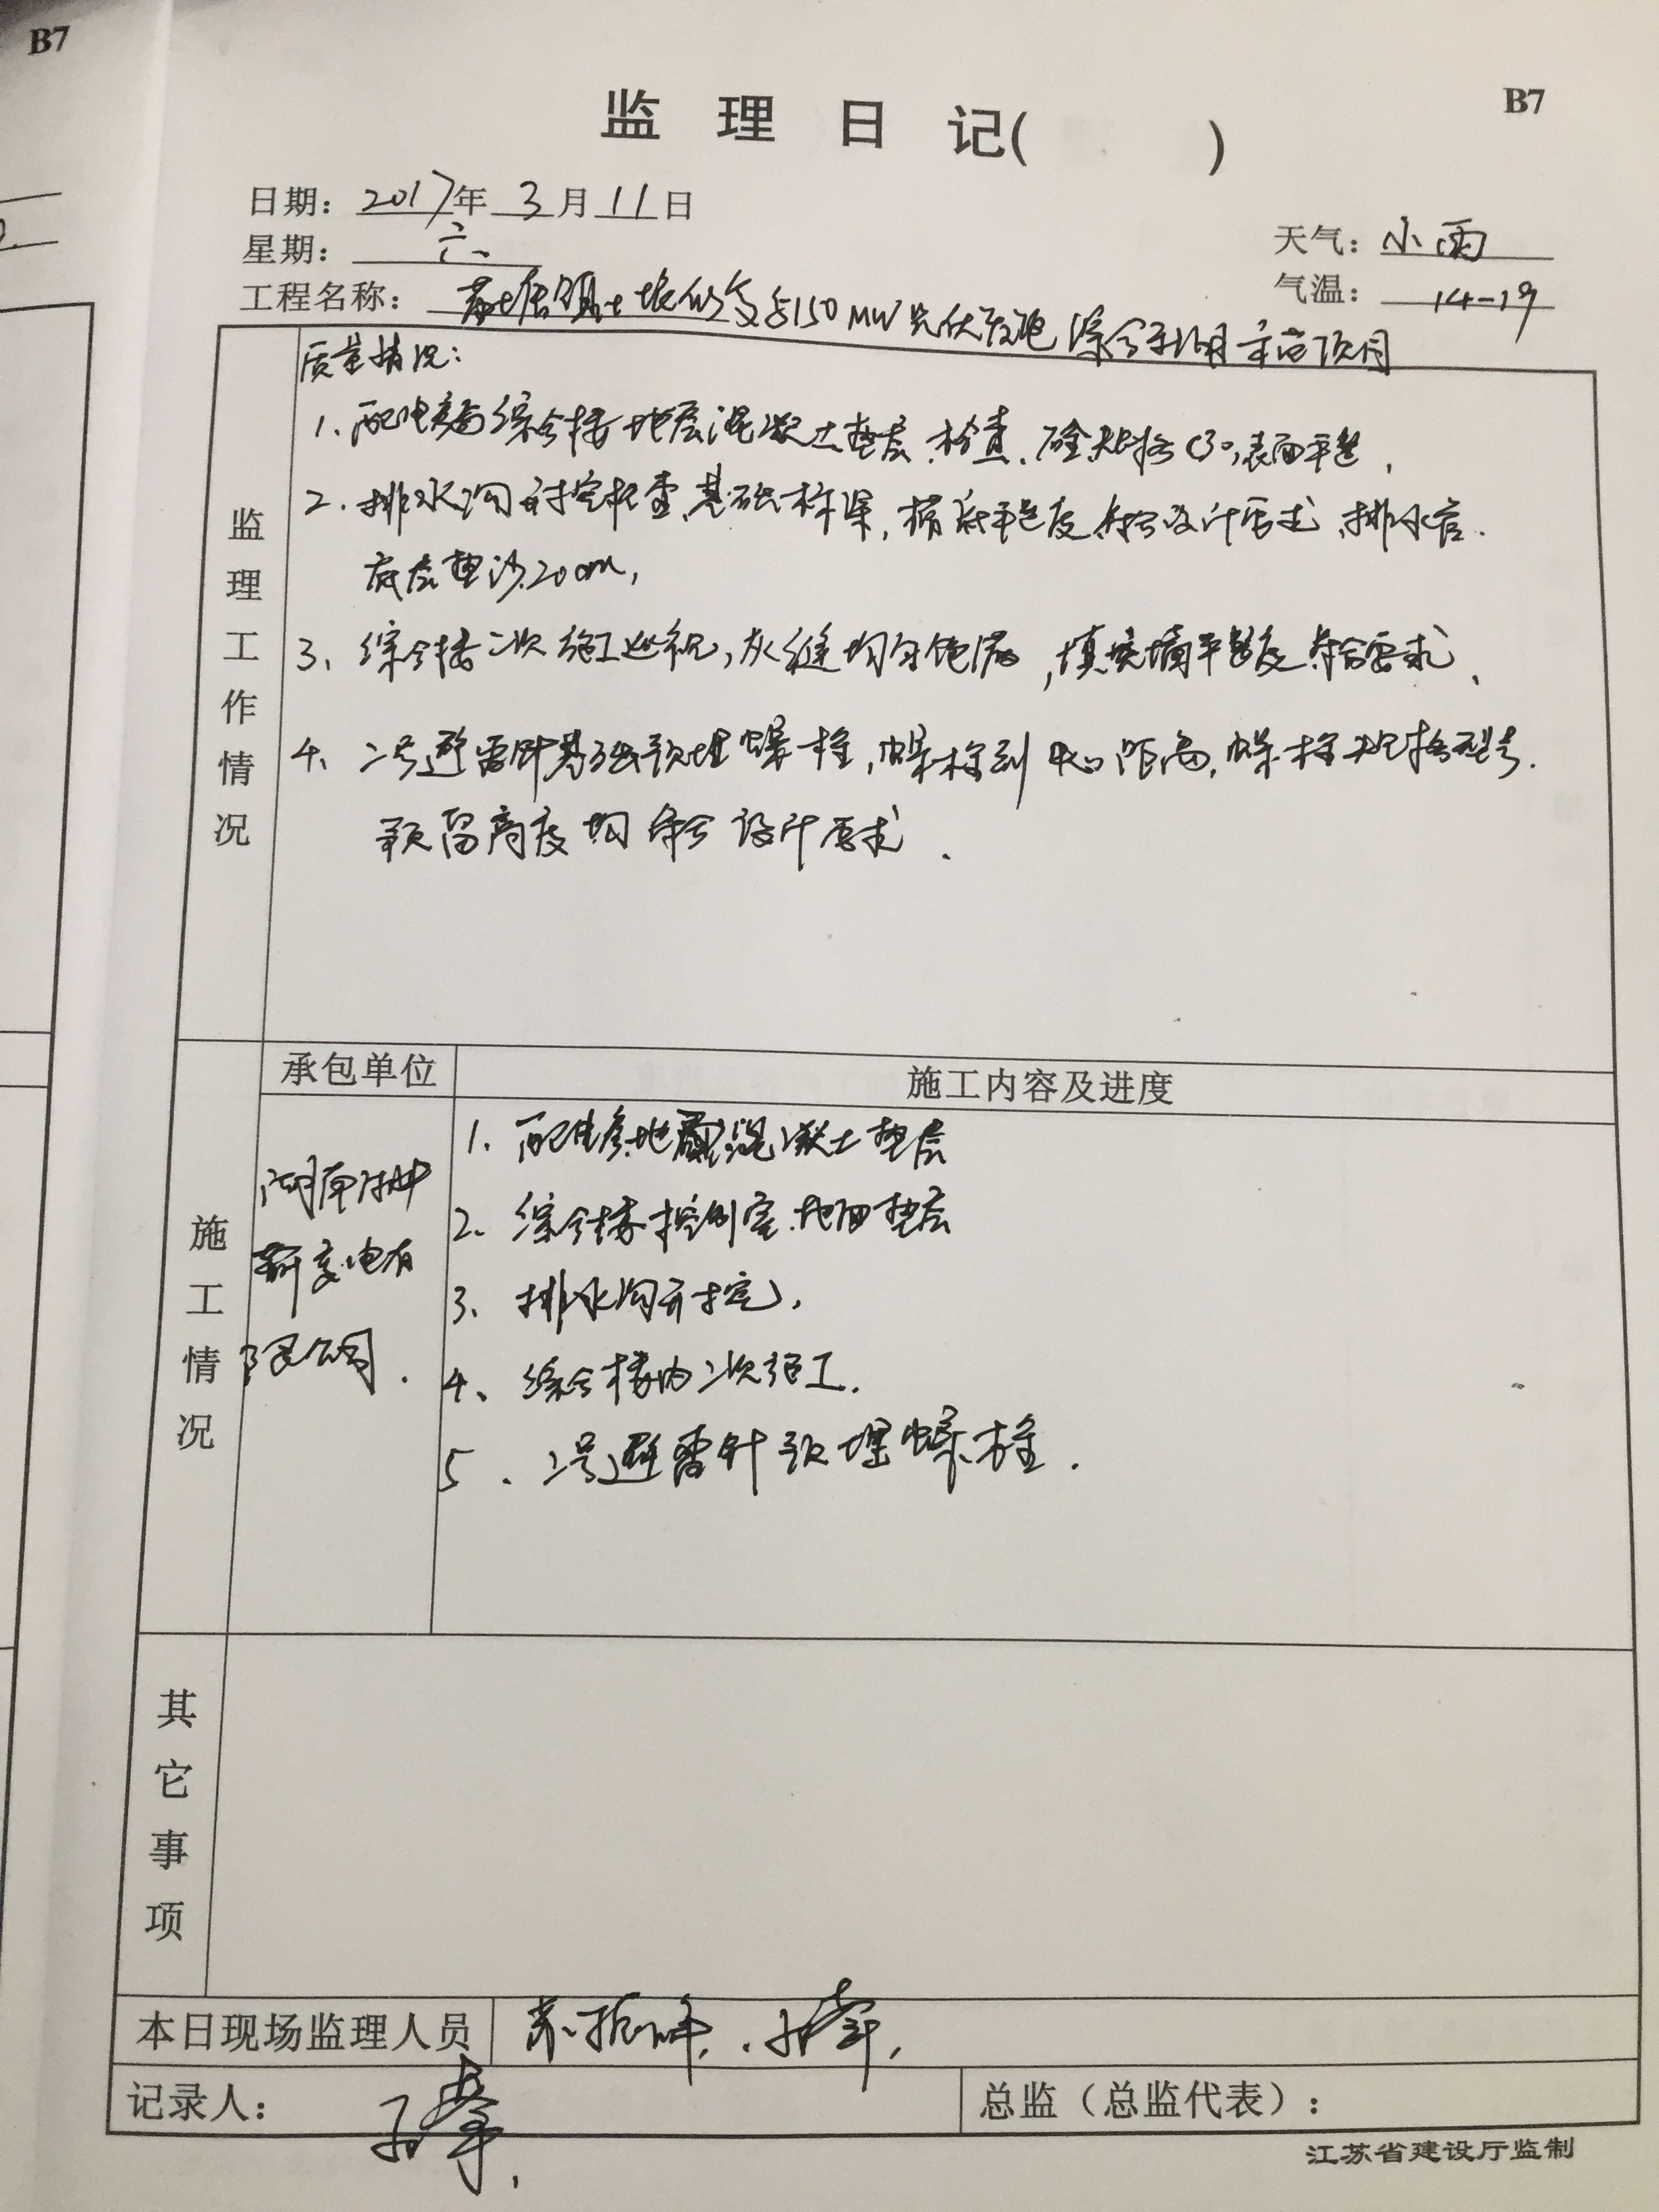 B7
B7
监理日记( )
日期：2017年3月11日
星期：六
天气：小雨
气温：14-19
工程名称：150MW光伏发电综合利用示范项目
质量情况：
监理工作情况
1.配电室综合楼地层混凝土垫层.检查.砼规格C30,表面平整,
2.排水沟开挖检查,基础标深,横底平整度符合设计要求,排水管.
底层垫沙20cm,
3、综合楼二次施工巡视,灰缝均匀饱满,填充墙平整度符合要求、
4、二号避雷针基础预埋螺栓,螺栓到中心距离,螺栓规格型号.
预留高度均符合设计要求.
承包单位
施工内容及进度
施工情况
湖南
电有
限公司.
1.配电房地面混凝土垫层
2.综合楼控制室.地面垫层
3、排水沟开挖,
4、综合楼内二次施工.
5、二号避雷针预埋螺栓.
其它事项
本日现场监理人员
记录人：
总监（总监代表）：
江苏省建设厅监制